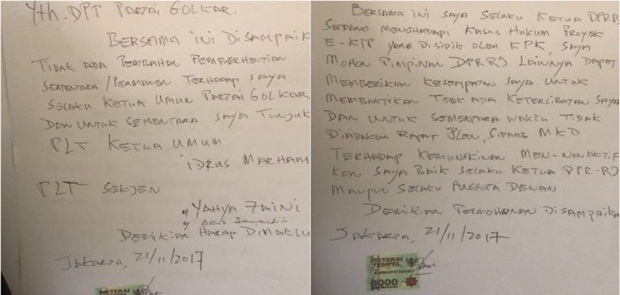 Yth. DPP PARTAI GOLKAR.
BERSAMA INI DISAMPAIK
TIDAK ADA PEMBERHENTIAN
SEMENTARA/PERMANEN TERHADAP SAYA
SELAKU KETUA UMUM PARTAI GOLKAR
DAN UNTUK SEMENTARA SAYA TUNJUK
PLT KETUA UMUM
IDRUS MARHAM
PLT SEKJEN
YAHYA ZAINI
DEMIKIAN HARAP DIMAKLU
JAKARTA, 21/11/2017
BERSAMA INI SAYA SELAKU KETUA DPR RI
SEDANG MENGHADAPI KASUS HUKUM PROYEK
E-KTP YANG DISIDIK OLEH KPK, SAYA
MOHON PIMPINAN DPR RI LAINNYA DAPAT
MEMBERIKAN KESEMPATAN SAYA UNTUK
MEMBUKTIKAN TIDAK ADA KETERLIBATAN SAYA
DAN UNTUK SEMENTARA WAKTU TIDAK
DIADAKAN RAPAT PLENO, SIDANG MKD
TERHADAP KEMUNGKINAN MEN-NONAKTIF
KAN SAYA BAIK SELAKU KETUA DPR-RI
MAUPUN SELAKU ANGGOTA DEWAN.
DEMIKIAN PERMOHONAN DISAMPAIKA
JAKARTA, 21/11/2017
METERAI
TEMPEL
6000